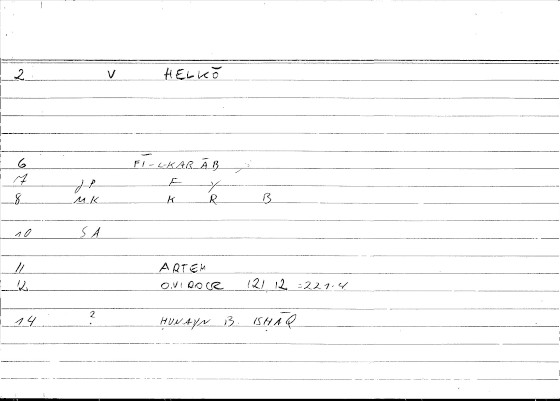 2 V HELKŌ
6 FĪ-LKARĀB
7 JP F Y
8 MK K R B
10 SA
11 ARTEM
12 121, 12 = 221.4
14 ? ḤUNAYN B. ISḤĀQ